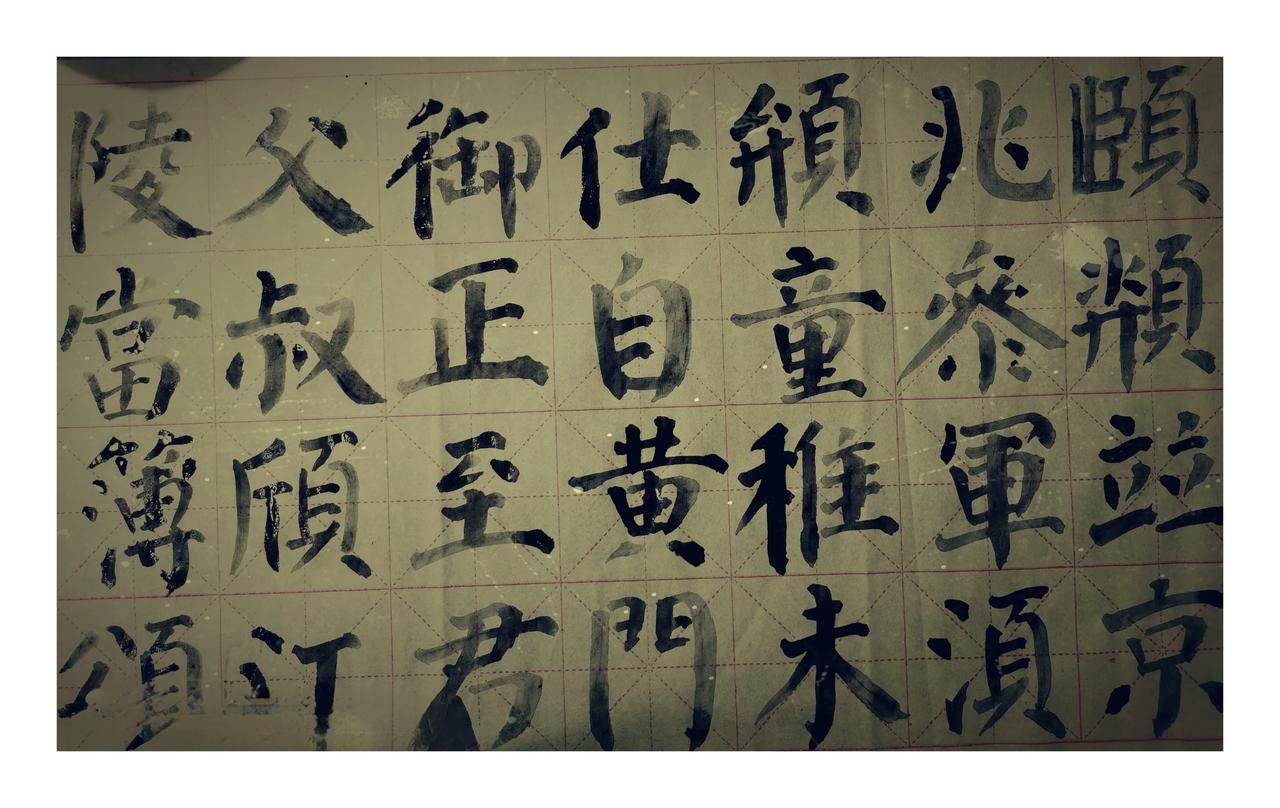 頤竝京
兆參軍湏
頩童稚未
仕自黃門
御正至君
父叔頎江
陵當簿頌